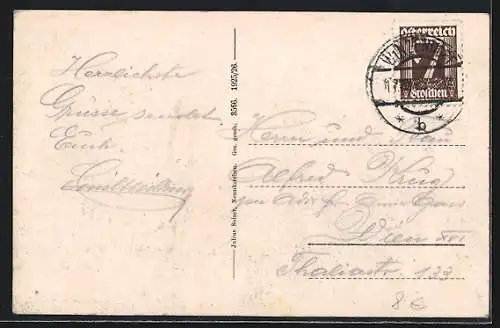 Herzlichste
Grüsse sendet
Euch
Julius Bolsch, Neunkirchen. Ges. gesch. 3566. 1925/26.
Österreich
7
Groschen
* b *
Herrn und Frau
Alfred Krug
Wien XVI
Thaliastr 133
8€